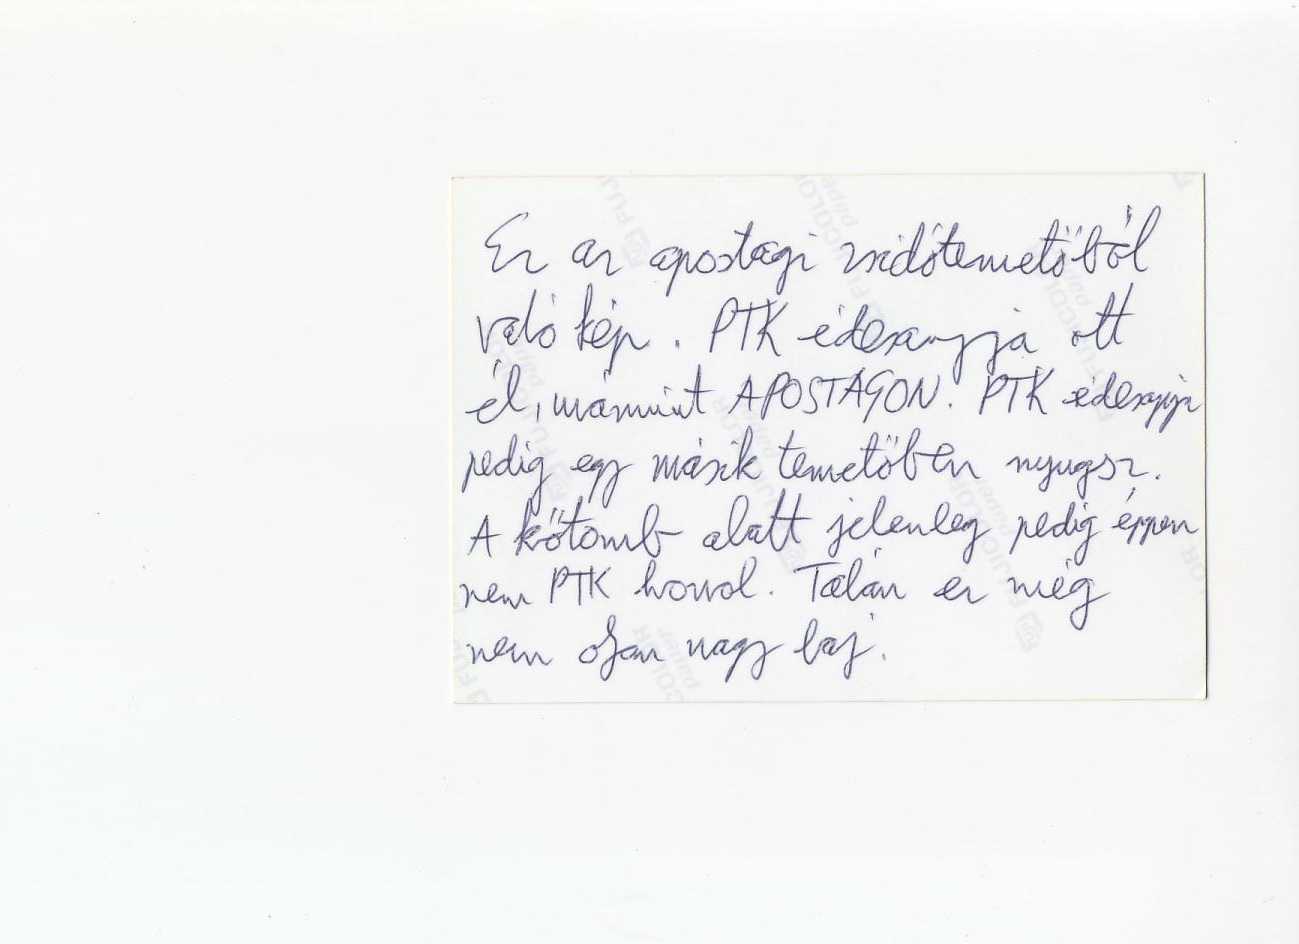 Ez az apostagi zsidótemetőből
való kép. PTK édesanyja ott
él, mármint APOSTAGON. PTK édesapja
pedig egy másik temetőben nyugsz.
A kőtömb alatt jelenleg pedig éppen
nem PTK horrol. Talán ez még
nem olyan nagy baj.